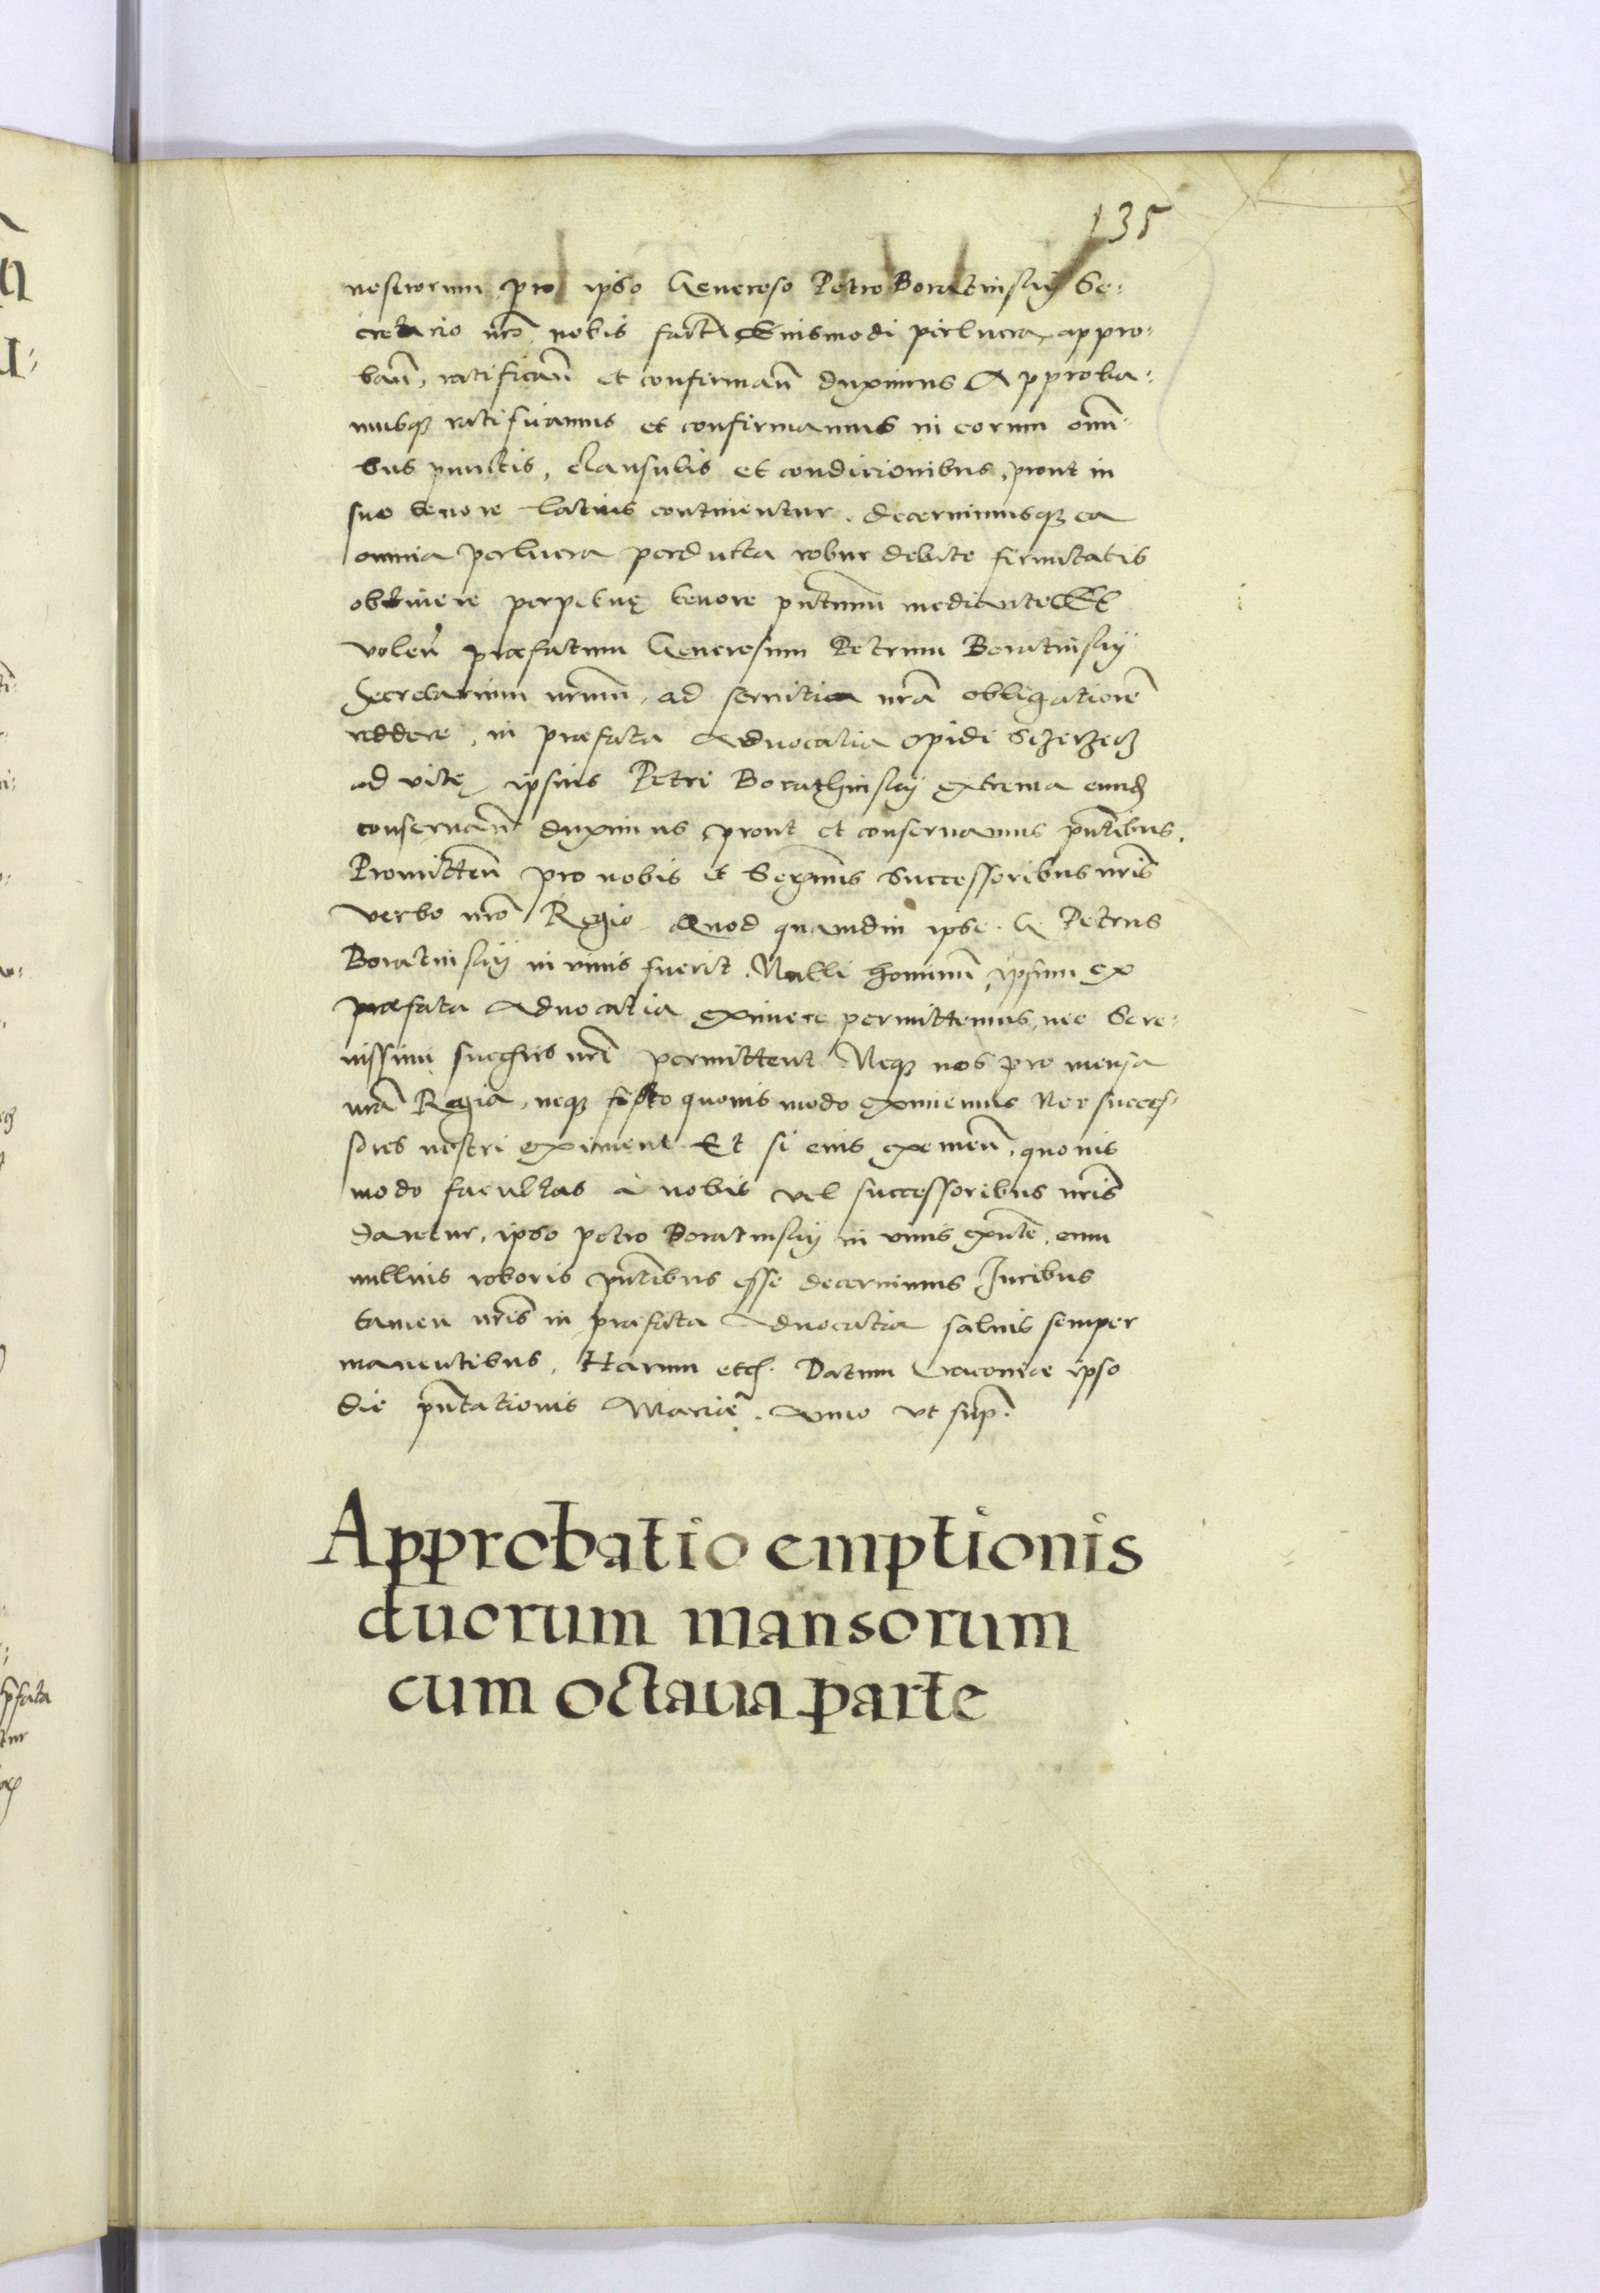 135
nostrorum pro ipso Generoso Petro Boratinskij Se-
cretario nrõ nobis factã Eiusmodi perlucra appro-
bañ, ratificañ et confirmañ duximus Approba-
musq ratificamus et confirmamus in eorum omni-
bus punctis, clausulis et condicionibus, prout in
suo tenore latius continentur. decernimusq ea
omnia perlucra perducta robur debite firmitatis
obtinere perpetuę tenore pñtium mediante Et
volen̄ præfatum Generosum Petrum Boratinskij
Secretarium nrũm, ad servitia nrã obligatiorẽ
reddere, in præfata Advocatia opidi
ad vitę ipsius Petri Borathinskij extrema eund
conservañ duximus prout et conservamus pñtibus.
Promitteñ pro nobis et Serẽmis successoribus nrĩs
verbo nrõ Regio Quod quamdiu ipse G Petrus
Boratinskij in vivis fuerit. Nulli hominũ ipsum ex
præfata Advocatia eximere permittemus, nec Sere-
nissimi nrĩ permittent Neq nos pro mensa
nrã Regia, neq quovis modo eximemus Nec succes-
sores nostri eximent Et si eius eximeñ, quovis
modo facultas à nobis vel successoribus nrĩs
daretur, ipso petro Boratinskij in vivis exñte, eam
nullius roboris pñtibus esse decernimus Juribus
tamen nrĩs in præfata Advocatia salvis semper
manentibus. Harum etc. Datum Cracoviæ ipso
die pñtationis Mariæ. Anno ut sup.
Approbatio emptionis
duorum mansorum
cum octaua parte